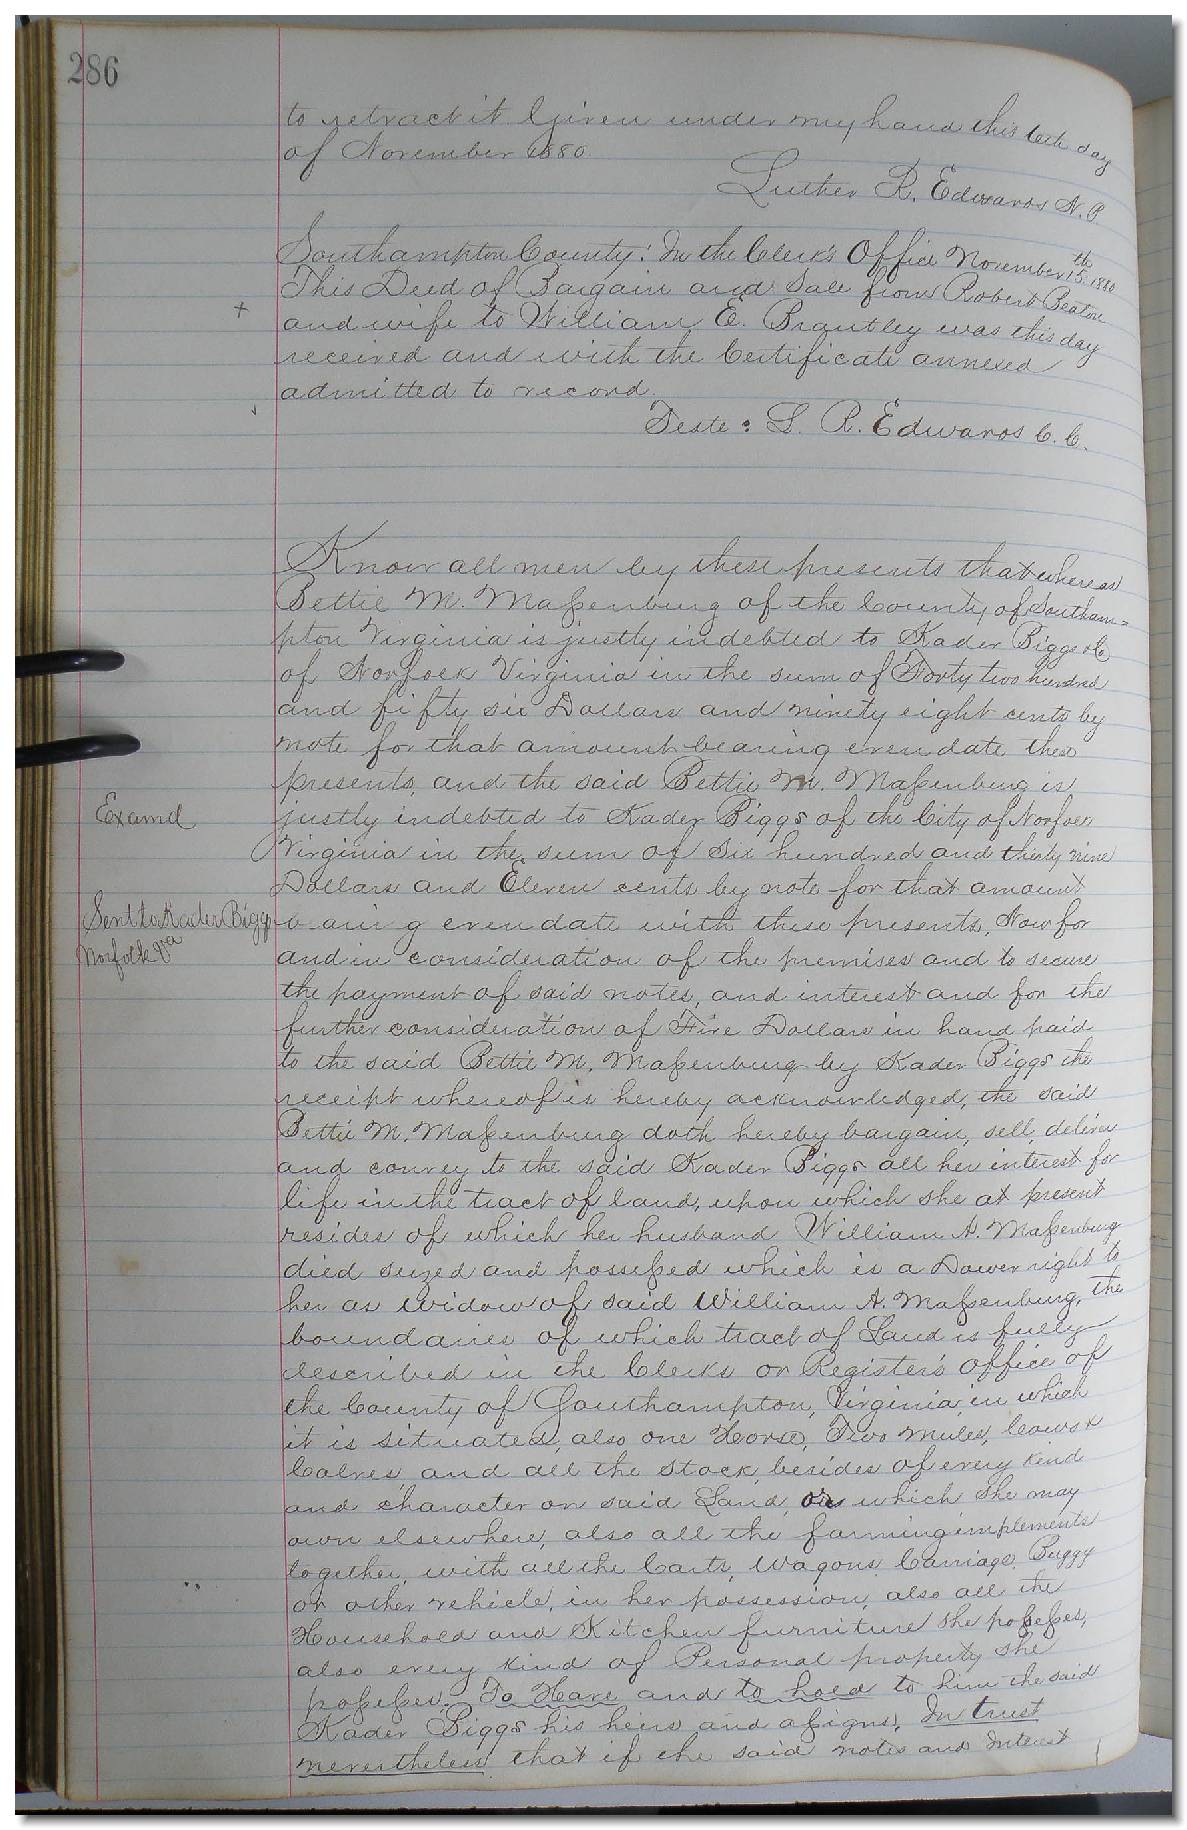 286
to retract it Given under my hand this 6th day
of November 1880.
Luther R. Edwards N.P.
Southampton County: In the Clerk's Office November 15th 1880
This Deed of Bargain and Sale from Robert Beaton
and wife to William E. Brantley was this day
received and with the Certificate annexed
admitted to record.
Teste: L. R. Edwards C.C.
Know all men by these presents that whereas
Bettie M. Maßenburg of the County of Southam=
pton Virginia is justly indebted to Kader Biggs & Co
of Norfolk Virginia in the sum of Forty two hundred
and fifty six Dollars and ninety eight cents by
note for that amount bearing even date these
presents, and the said Bettie M. Maßenburg is
Examd
justly indebted to Kader Biggs of the City of Norfolk
Virginia in the sum of Six hundred and thirty nine
Dollars and Eleven cents by note for that amount
Sent to Kader Biggs
Norfolk Va
b aring even date with these presents, Now for
and in consideration of the premises and to secure
the payment of said notes, and interest and for the
further consideration of Five Dollars in hand paid
to the said Bettie M. Maßenburg by Kader Biggs the
receipt whereof is hereby acknowledged, the said
Bettie M. Maßenburg doth hereby bargain, sell, deliver
and convey to the said Kader Biggs all her interest for
life in the tract of land, upon which she at present
resides of which her husband William A. Maßenburg
died seized and poßeßed which is a Dower right to
her as widow of said William A. Maßenburg, the
boundaries of which tract of Land is fully
described in the Clerks or Register's office of
the County of Southampton, Virginia, in which
it is situated, also one Horse, Two Mules, Cows &
Calves, and all the Stock, besides of every kind
and character on said Land, or which she may
own elsewhere, also all the farming implements
together, with all the Carts, Wagons, Carriage, Buggy
or other vehicle, in her possession, also all the
Household and Kitchen furniture she poßeßes,
also every kind of Personal property she
poßeßes. To Have and to hold to him the said
Kader Biggs his heirs and aßigns, In trust
nevertheless that if the said notes and Interest